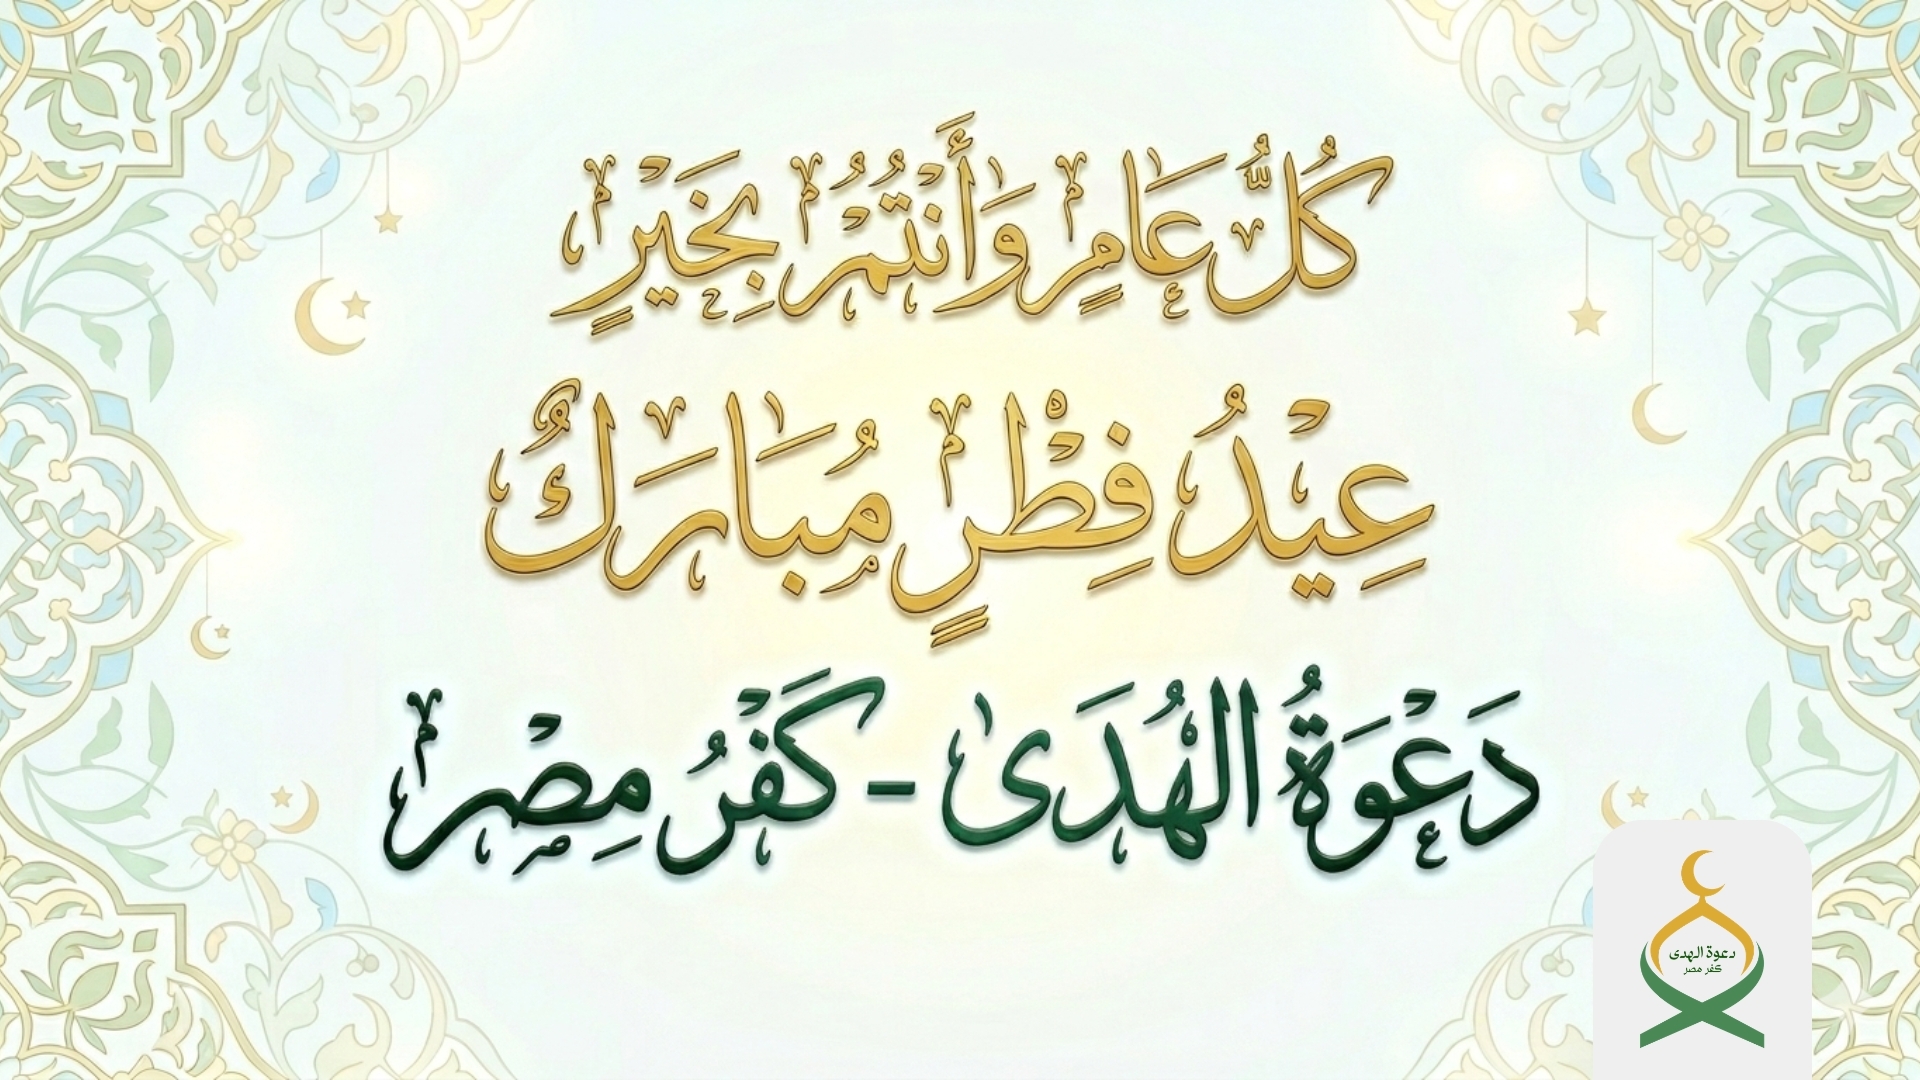 كُلُّ عَامٍ وَأَنْتُمْ بِخَيْرٍ
عِيْدُ فِطْرٍ مُبَارَكٌ
دَعْوَةُ الْهُدَى - كَفْرُ مِصْر
دعوة الهدى
كفر مصر